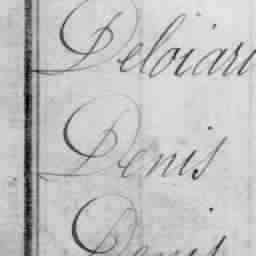 Deloiari
Denis
Denis